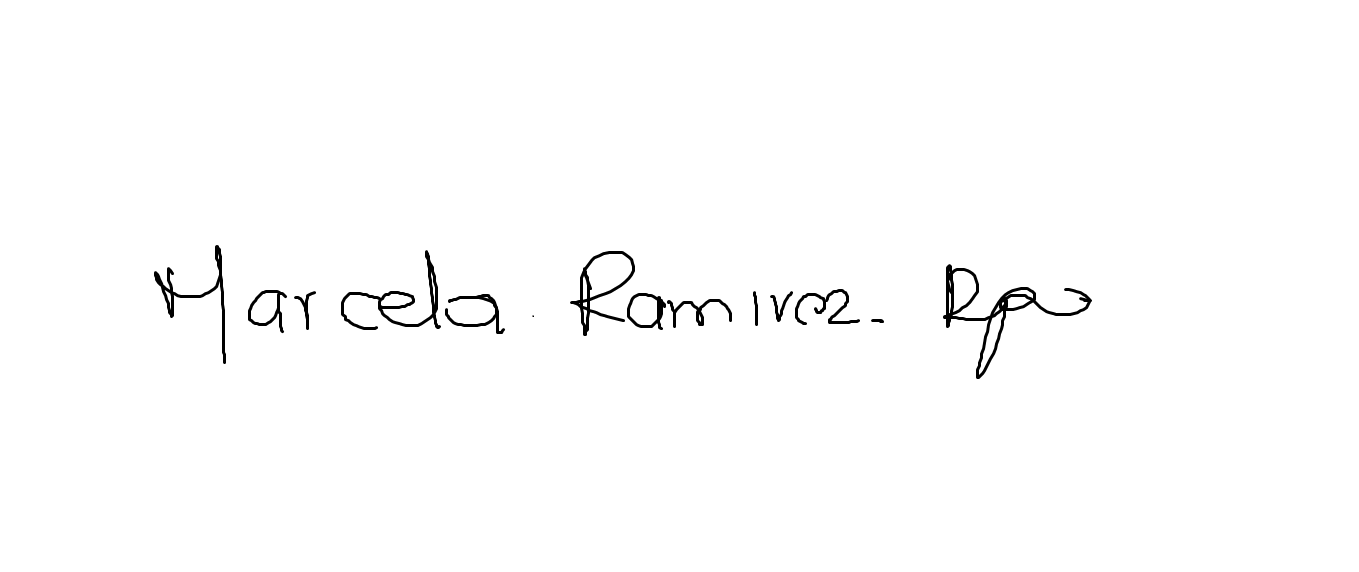 Marcela Ramirez. Rpo